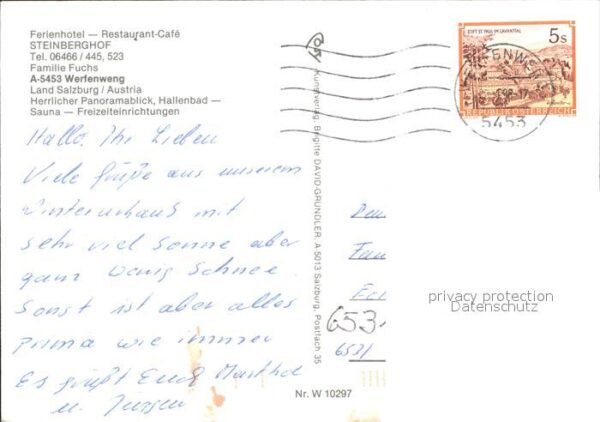 Ferienhotel — Restaurant-Café
STEINBERGHOF
Tel. 06466 / 445, 523
Familie Fuchs
A-5453 Werfenweng
Land Salzburg / Austria
Herrlicher Panoramablick, Hallenbad —
Sauna — Freizeiteinrichtungen
Hallo, Ihr Lieben
Viele Grüße aus unserem
Winterurlaub mit
sehr viel Sonne aber
ganz wenig Schnee.
Sonst ist aber alles
prima wie immer
Es grüßt Euch
u. Jürgen
Kunstverlag, Brigitte DAVID-GRÜNDLER, A-5013 Salzburg, Postfach 35
Nr. W 10297
STIFT ST. PAUL IM LAVANTTAL
5s
REPUBLIK ÖSTERREICH
5453
Fam
653
6531
privacy protection
Datenschutz